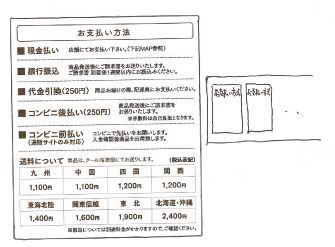 お支払い方法
■現金払い 店舗にてお支払い下さい。(下記MAP参照)
■銀行振込 商品発送後にご請求書をお送りいたします。
ご請求書 到着後1週間以内にお振込みください。
■代金引換(250円) 商品お届けの際、配達員にお支払いください。
■コンビニ後払い(250円) 商品発送後にご請求書を
お送りいたします。
※手数料は自己負担となります。
■コンビニ前払い
(通販サイトのみ対応) コンビニで先払いをお願いします。
入金確認後商品を出荷致します。
送料について 商品は、クール冷凍便にてお送りします。 (税込表記)
九州 中国 四国 関西
1,100円 1,100円 1,200円 1,200円
東海北陸 関東信越 東北 北海道・沖縄
1,400円 1,600円 1,900円 2,400円
お支払い方法